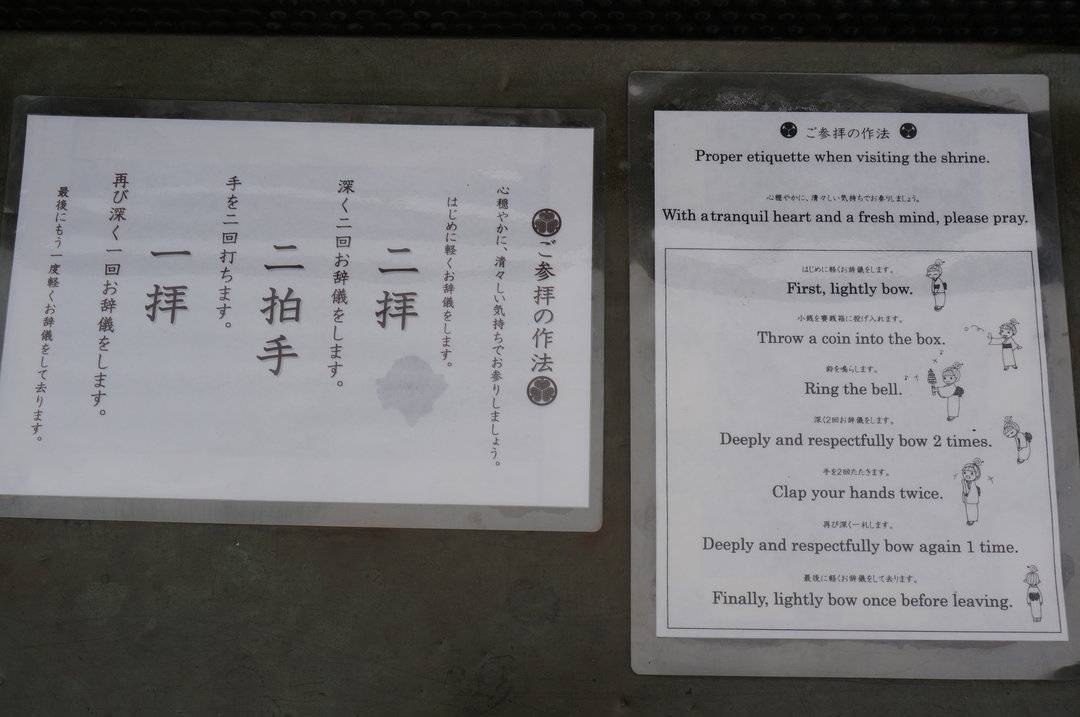 ご参拝の作法
心穏やかに、清々しい気持ちでお参りしましょう。
はじめに軽くお辞儀をします。
二拝
深く二回お辞儀をします。
二拍手
手を二回打ちます。
一拝
再び深く一回お辞儀をします。
最後にもう一度軽くお辞儀をして去ります。
ご参拝の作法
Proper etiquette when visiting the shrine.
心穏やかに、清々しい気持ちでお参りしましょう。
With a tranquil heart and a fresh mind, please pray.
はじめに軽くお辞儀をします。
First, lightly bow.
小銭を賽銭箱に投げ入れます。
Throw a coin into the box.
鈴を鳴らします。
Ring the bell.
深く2回お辞儀をします。
Deeply and respectfully bow 2 times.
手を2回たたきます。
Clap your hands twice.
再び深く一礼します。
Deeply and respectfully bow again 1 time.
最後に軽くお辞儀をして去ります。
Finally, lightly bow once before leaving.